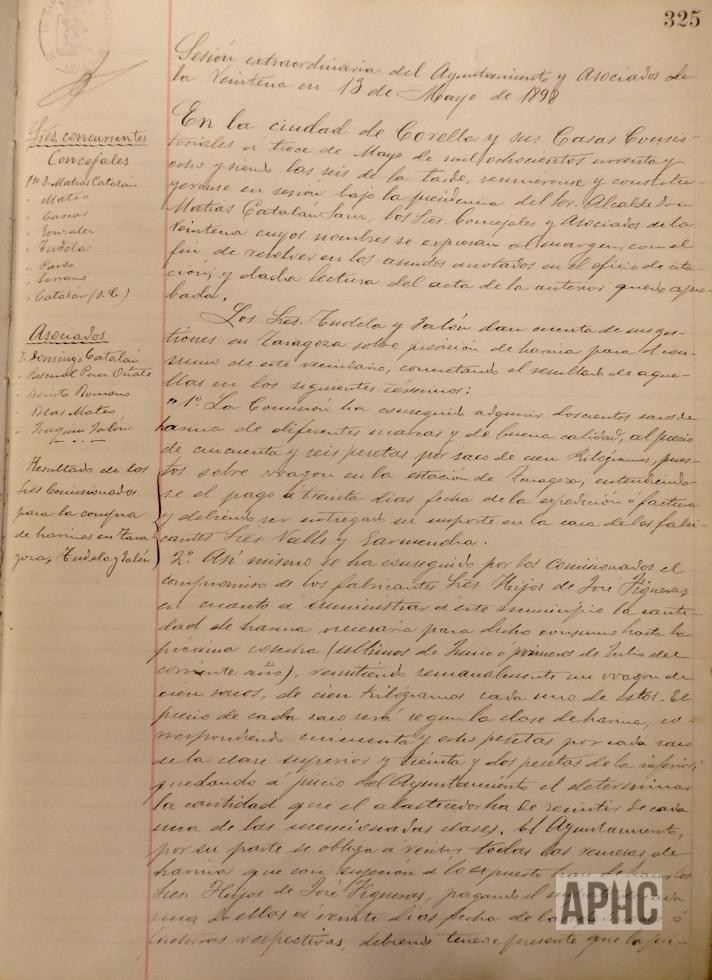 325
Sesión extraordinaria del Ayuntamiento y Asociados de
la Veintena en 13 de Mayo de 1898
Sres. concurrentes
Concejales
Pte D. Matias Catalán
" Mateo
" Gonzalez
" Tudela
" Pardo
" Serrano
" Catalán (D. C.)
Asociados
D. Domingo Catalán
" Pascual Perez Oñate
" Benito Romano
" Blas Mateo
" Joaquin Jalón
Resultado de los
Sres Comisionados
para la compra
de harinas en Zara
goza, Tudela y Jalón
En la ciudad de Corella y sus Casas Consis-
toriales a trece de Mayo de mil ochocientos noventa y
ocho y siendo las seis de la tarde, reunieronse y constitu-
yeronse en sesión bajo la presidencia del Sor. Alcalde Don
Matias Catalán Sanz, los Sres. Concejales y Asociados de la
Veintena cuyos nombres se expresan al margen, con el
fin, de resolver en los asuntos anotados en el oficio de cita-
ción; y dada lectura del acta de la anterior quedó apro-
bada.
Los Sres. Tudela y Jalón dan cuenta de sus ges-
tiones en Zaragoza sobre provisión de harina para el con-
sumo de este vecindario, concretando el resultado de aque-
llas en los siguientes términos:
"1º La Comisión ha conseguido adquirir doscientos sacos de
harina de diferentes marcas y de buena calidad, al precio
de cincuenta y seis pesetas por saco de cien Kilógramos, pues-
tos sobre wagon en la estación de Zaragoza, entendiendo-
se el pago á treinta dias fecha de la expedición ó factura
y debiendo ser entregado su importe en la casa de los fabri-
cantes Sres Valls y Garmendia.
2º Asi mismo se ha conseguido por los comisionados el
compromiso de los fabricantes Sres. Hijos de José Figueras,
en cuanto á suministrar a este municipio la canti-
dad de harina necesaria para dicho consumo hasta la
próxima cosecha (ultimos de Junio ó primeros de Julio del
corriente año), remitiendo semanalmente un wagon de
cien sacos, de cien Kilogramos cada uno de estos. El
precio de cada saco será segun la clase de harina, co-
rrespondiendo cincuenta y ocho pesetas por cada saco
de la clase superior y treinta y dos pesetas de la inferior;
quedando á juicio del Ayuntamiento el determinar
la cantidad que el abastecedor ha de remitir de cada
una de las mencionadas clases. El Ayuntamiento,
por su parte se obliga a recibir todas las remesas de
harina que con sujeción á lo expuesto han de hacer los
Sres. Hijos de José Figueras, pagando el cada
una de ellas a veinte dias fecha de la ó
facturas respectivas, debiendo tenerse presente que la
APHC